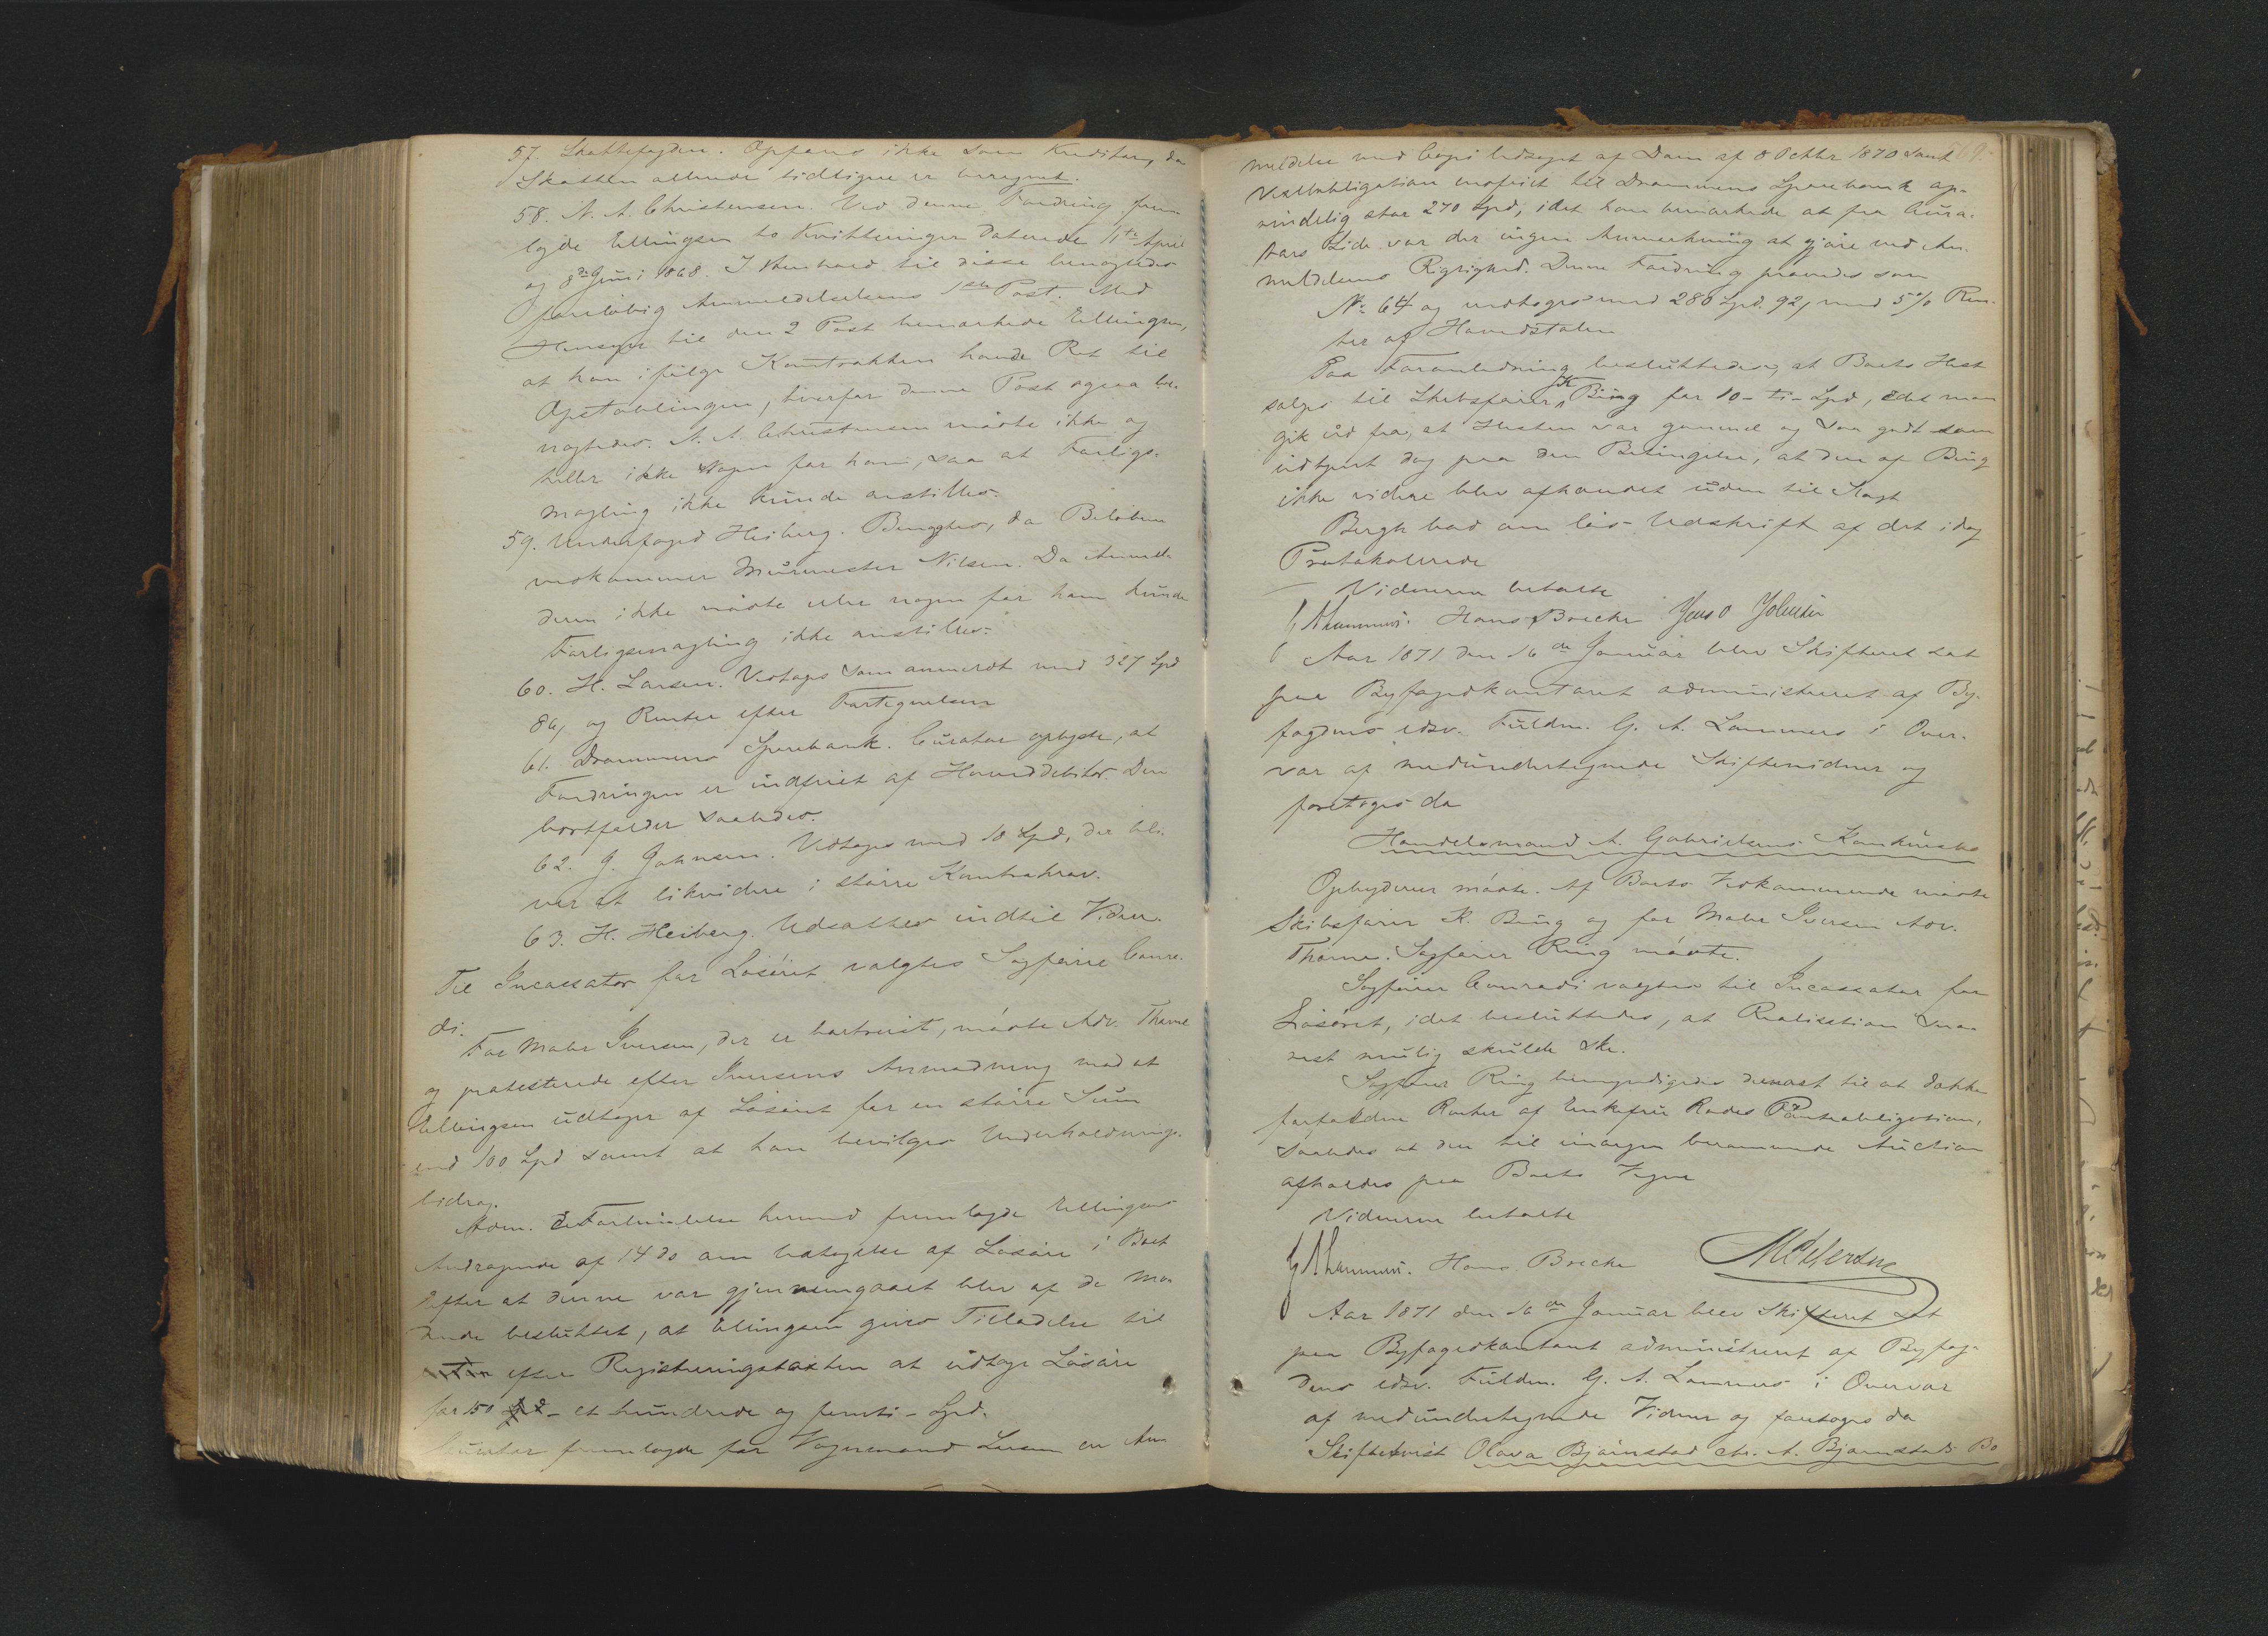 57. Skattefogden. Opføres ikke som Kreditor, da
Skatten allerede tidligere er beregnet.
58. N. A. Christensen. Ved denne Fordring frem-
lagde Ellingsen to Kvitteringer daterede 11te April
og 8de Juni 1868. I Henhold til disse benægtedes
foreløbig Anmeldelsens 1ste Post. Med
Hensyn til den 2 Post bemærkede Ellingsen,
at han ifølge Kontrakten havde Ret til
Opstablingen, hvorfor denne Post ogsaa be-
nægtedes. N. A. Christensen mødte ikke og
heller ikke Nogen for ham, saa at Forligs-
mægling ikke kunde anstilles.
59. Underfoged Heiberg. Benægtes, da Beløbene
vedkommer Muurmester Nilsen. Da Anmel-
deren ikke mødte eller nogen for ham kunde
Forligsmægling ikke anstilles.
60. H. Larsen. Vedtages som anmeldt med 327 Spd
86, og Renter efter Fortegnelsen
61. Drammens Sparebank. Curator oplyste, at
Fordringen er indfriet af Hoveddebitor. Den
bortfalder saaledes.
62. J. Johnsen. Vedtages med 18 Spd, der bli-
ver at likvidere i større Kontrakrav.
63. H. Heiberg. Udsattes indtil Videre.
Til Incassator for Løsøret valgtes Sagfører Conra-
di.
For Maler Iversen, der er bortreist, mødte Adv. Thorne
og protesterede efter Iversens Anmodning mod at
Ellingsen udtager af Løsøret for en større Sum
end 100 Spd samt at han bevilges Underholdnings-
bidrag.
Adm. i Forbindelse hermed fremlagde Ellingsens
Andragende af 14 ds om Udtagelse af Løsøre i Boet
Efter at denne var gjennemgaaet blev af de Mø-
dende besluttet, at Ellingsen gives Tilladelse til
efter Registreringstaxten at udtage Løsøre
for 150 - et hundrede og femti - Spd.
Curator fremlagde for Vognmand Larsen en An-
69.
meldelse med Copi ledsaget af Dom af 8 Octbr 1870 samt
Vexelobligation indfriet til Drammens Sparebank op-
rindelig stor 270 Spd, idet han bemærkede at fra Cura-
tors Side var der ingen Anmerkning at gjøre ved An-
meldelsens Rigtighed. Denne Fordring prøvedes som
No 64 og vedtoges med 280 Spd. 92, med 5% Ren-
ter af Hovedstolen
Paa Foranledning besluttedes, at Boets Hest
solges til Skibsfører K Bing for 10 - ti - Spd, idet man
gik ud fra, at Hesten var gammel og saa godt som
udtjent dog paa den Betingelse, at den af Bing
ikke videre blev afhændet uden til Slagt
Bergh bad om løs Udskrift af det idag
Protokollerede
Vidnerne betalte
G A Lammers. Hans Boeche Jens O Johnsen
Aar 1871 den 16de Januar blev Skifteret sat
paa Byfogedkontoret administreret af By-
fogdens edsv. Fuldm. G. A. Lammers i Over-
vær af medundertegnede Skiftevidner og
foretoges da
Handelsmand A. Gabrielsens Konkursbo
Opbyderen mødte. Af Boets Vedkommende mødte
Skibsfører K. Bing og for Maler Iversen Adv.
Thorne. Sagfører Ring mødte.
Sagfører Conradi valgtes til Incassator for
Løsøret, idet besluttedes, at Realisation sna-
rest mulig skulde ske.
Sagfører Ring bemyndigedes dernæst til at dække
forfaldne Renter af Enkefru Rodes Panteobligation,
saaledes at den til imorgen berammede Auction
afholdes paa Boets Vegne
Vidnerne betalte
G A Lammers. Hans Boeche
Aar 1871 den 16de Januar blev Skifteret sat
paa Byfogedkontoret administreret af Byfog-
dens edsv. Fuldm. G. A. Lammers i Overvær
af medundertegnede Vidner og foretoges da
Skiftetvist Olava Bjørnstad ctr. A. Bjørnstads Bo